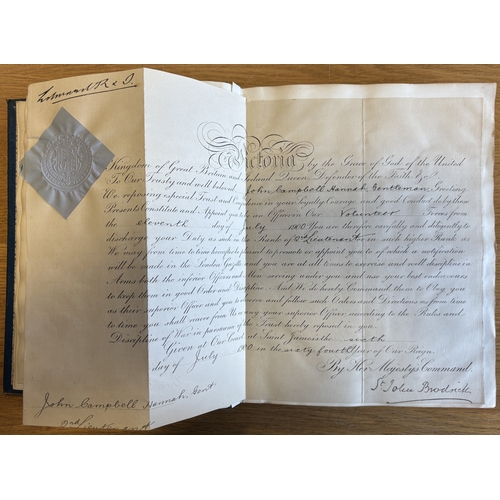 Edward R & I.
Victoria by the Grace of God of the United
Kingdom of Great Britain and Ireland Queen, Defender of the Faith &c.
To Our Trusty and well beloved John Campbell Hannah Gentleman, Greeting
We reposing especial Trust and Confidence in your loyalty Courage and good Conduct do by these
Presents Constitute and Appoint you to be an Officer in Our Volunteer Forces from
the eleventh day of July 1900 You are therefore carefully and diligently to
discharge your Duty as such in the Rank of 2nd Lieutenant or in such higher Rank as
We may from time to time hereafter promote or appoint you to of which a notification
will be made in the London Gazette and you are at all times to exercise and well discipline in
Arms both the inferior Officers and Men serving under you and use your best endeavours
to keep them in good Order and Discipline. And We do hereby Command them to Obey you
as their superior Officer and you to observe and follow such Orders and Directions as from time
to time you shall receive from Us or any your superior Officer according to the Rules and
Discipline of War in pursuance of the Trust hereby reposed in you.
Given at Our Court at Saint James's the sixth
day of July 1900 in the sixty fourth year of Our Reign
By Her Majesty's Command
St John Brodrick
John Campbell Hannah Gent
2nd Lieutenant